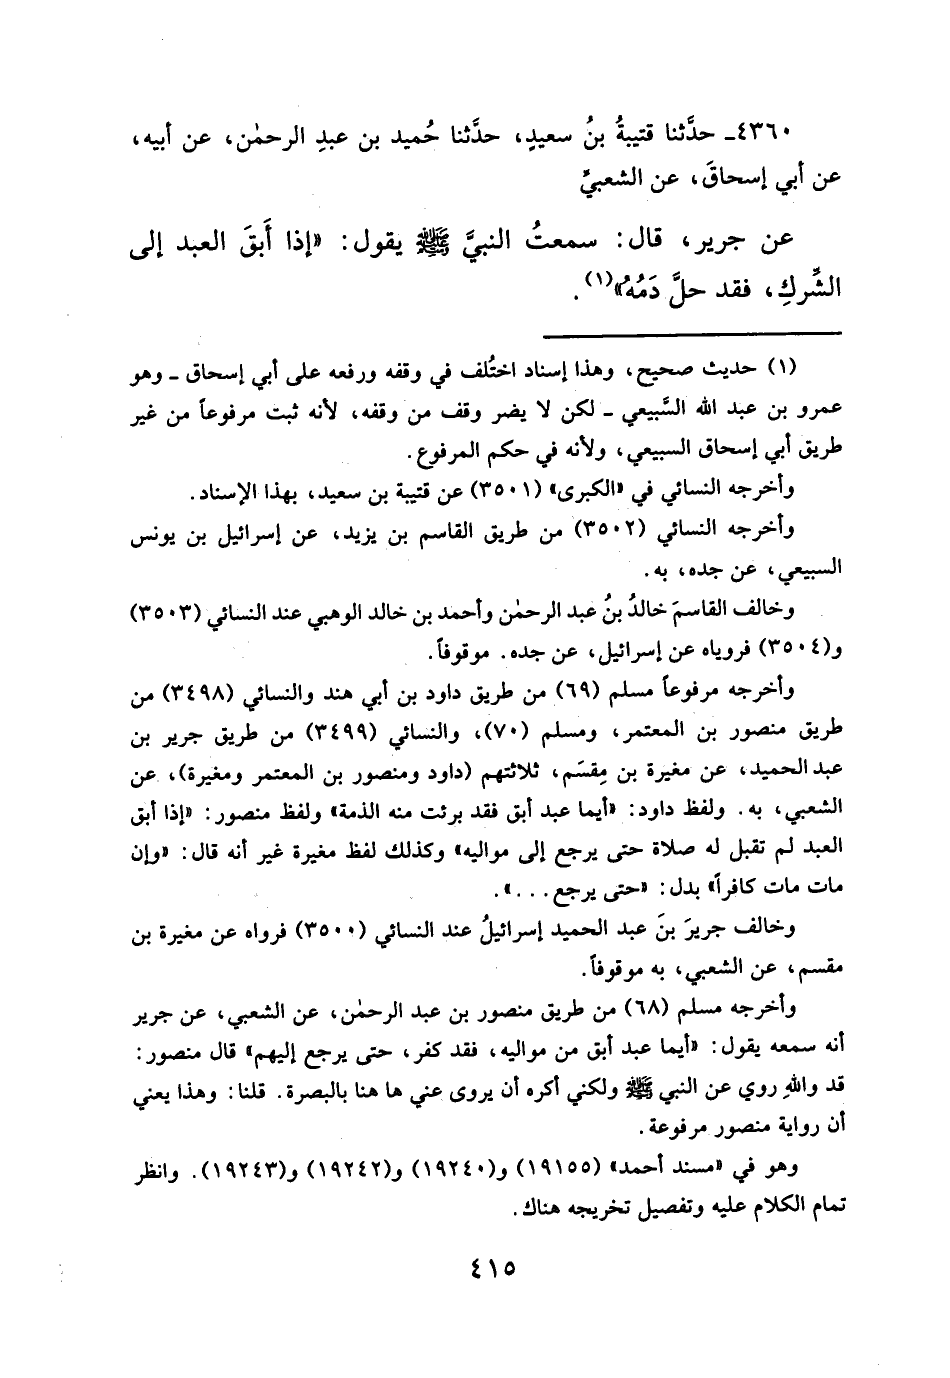 ٤٣٦٠ـ حدَّثنا قتيبةُ بنُ سعيدٍ، حدَّثنا حُميد بن عبدِ الرحمٰن، عن أبيه،
عن أبي إسحاقَ، عن الشعبيِّ
عن جرير، قال: سمعتُ النبيَّ ﷺ يقول: «إذا أَبقَ العبد إلى
الشِّركِ، فقد حلَّ دَمُهُ»(١).
(١) حديث صحيح، وهذا إسناد اختُلف في وقفه ورفعه على أبي إسحاق ـ وهو
عمرو بن عبد الله السَّبيعي ـ لكن لا يضر وقف من وقفه، لأنه ثبت مرفوعاً من غير
طريق أبي إسحاق السبيعي، ولأنه في حكم المرفوع.
وأخرجه النسائي في «الكبرى» (٣٥٠١) عن قتيبة بن سعيد، بهذا الإسناد.
وأخرجه النسائي (٣٥٠٢) من طريق القاسم بن يزيد، عن إسرائيل بن يونس
السبيعي، عن جده، به.
وخالف القاسمَ خالدُ بنُ عبد الرحمٰن وأحمد بن خالد الوهبي عند النسائي (٣٥٠٣)
و(٣٥٠٤) فروياه عن إسرائيل، عن جده. موقوفاً.
وأخرجه مرفوعاً مسلم (٦٩) من طريق داود بن أبي هند والنسائي (٣٤٩٨) من
طريق منصور بن المعتمر، ومسلم (٧٠)، والنسائي (٣٤٩٩) من طريق جرير بن
عبد الحميد، عن مغيرة بن مِقسَم، ثلاثتهم (داود ومنصور بن المعتمر ومغيرة)، عن
الشعبي، به. ولفظ داود: «أيما عبد أبق فقد برئت منه الذمة» ولفظ منصور: «إذا أبق
العبد لم تقبل له صلاة حتى يرجع إلى مواليه» وكذلك لفظ مغيرة غير أنه قال: «وإن
مات مات كافراً» بدل: «حتى يرجع...».
وخالف جريرَ بنَ عبد الحميد إسرائيلُ عند النسائي (٣٥٠٠) فرواه عن مغيرة بن
مقسم، عن الشعبي، به موقوفاً.
وأخرجه مسلم (٦٨) من طريق منصور بن عبد الرحمٰن، عن الشعبي، عن جرير
أنه سمعه يقول: «أيما عبد أبق من مواليه، فقد كفر، حتى يرجع إليهم» قال منصور:
قد واللهِ روي عن النبي ﷺ ولكني أكره أن يروى عني ها هنا بالبصرة. قلنا: وهذا يعني
أن رواية منصور مرفوعة.
وهو في «مسند أحمد» (١٩١٥٥) و(١٩٢٤٠) و(١٩٢٤٢) و(١٩٢٤٣). وانظر
تمام الكلام عليه وتفصيل تخريجه هناك.
٤١٥